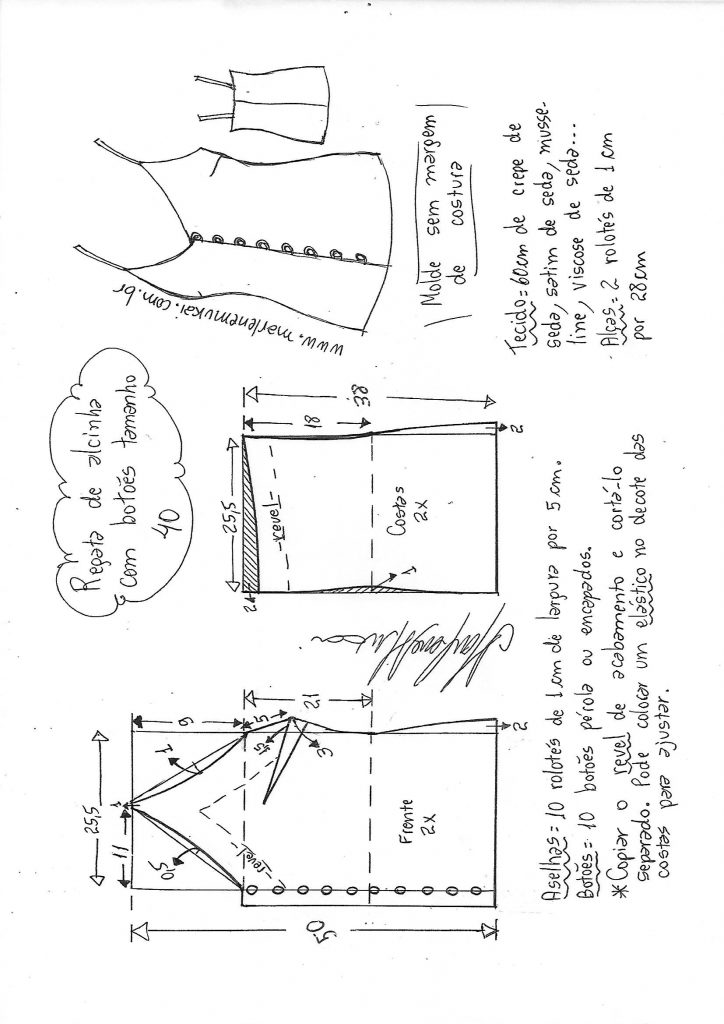 Regata de alcinha
com botões tamanho
40
www.marlenemukai.com.br
25,5
11
1
9
1
0,5
50
5
1,5
3
revel
21
Frente
2X
2
25,5
2
revel
18
38
Costas
2X
1
2
Molde sem margem
de costura
Aselhas = 10 rolotês de 1 cm de largura por 5 cm.
Botões = 10 botões pérola ou encapados.
* Copiar o revel de acabamento e cortá-lo
separado. Pode colocar um elástico no decote das
costas para ajustar.
Tecido = 60cm de crepe de
seda, satim de seda, musse-
line, viscose de seda...
Alças = 2 rolotês de 1 cm
por 28cm